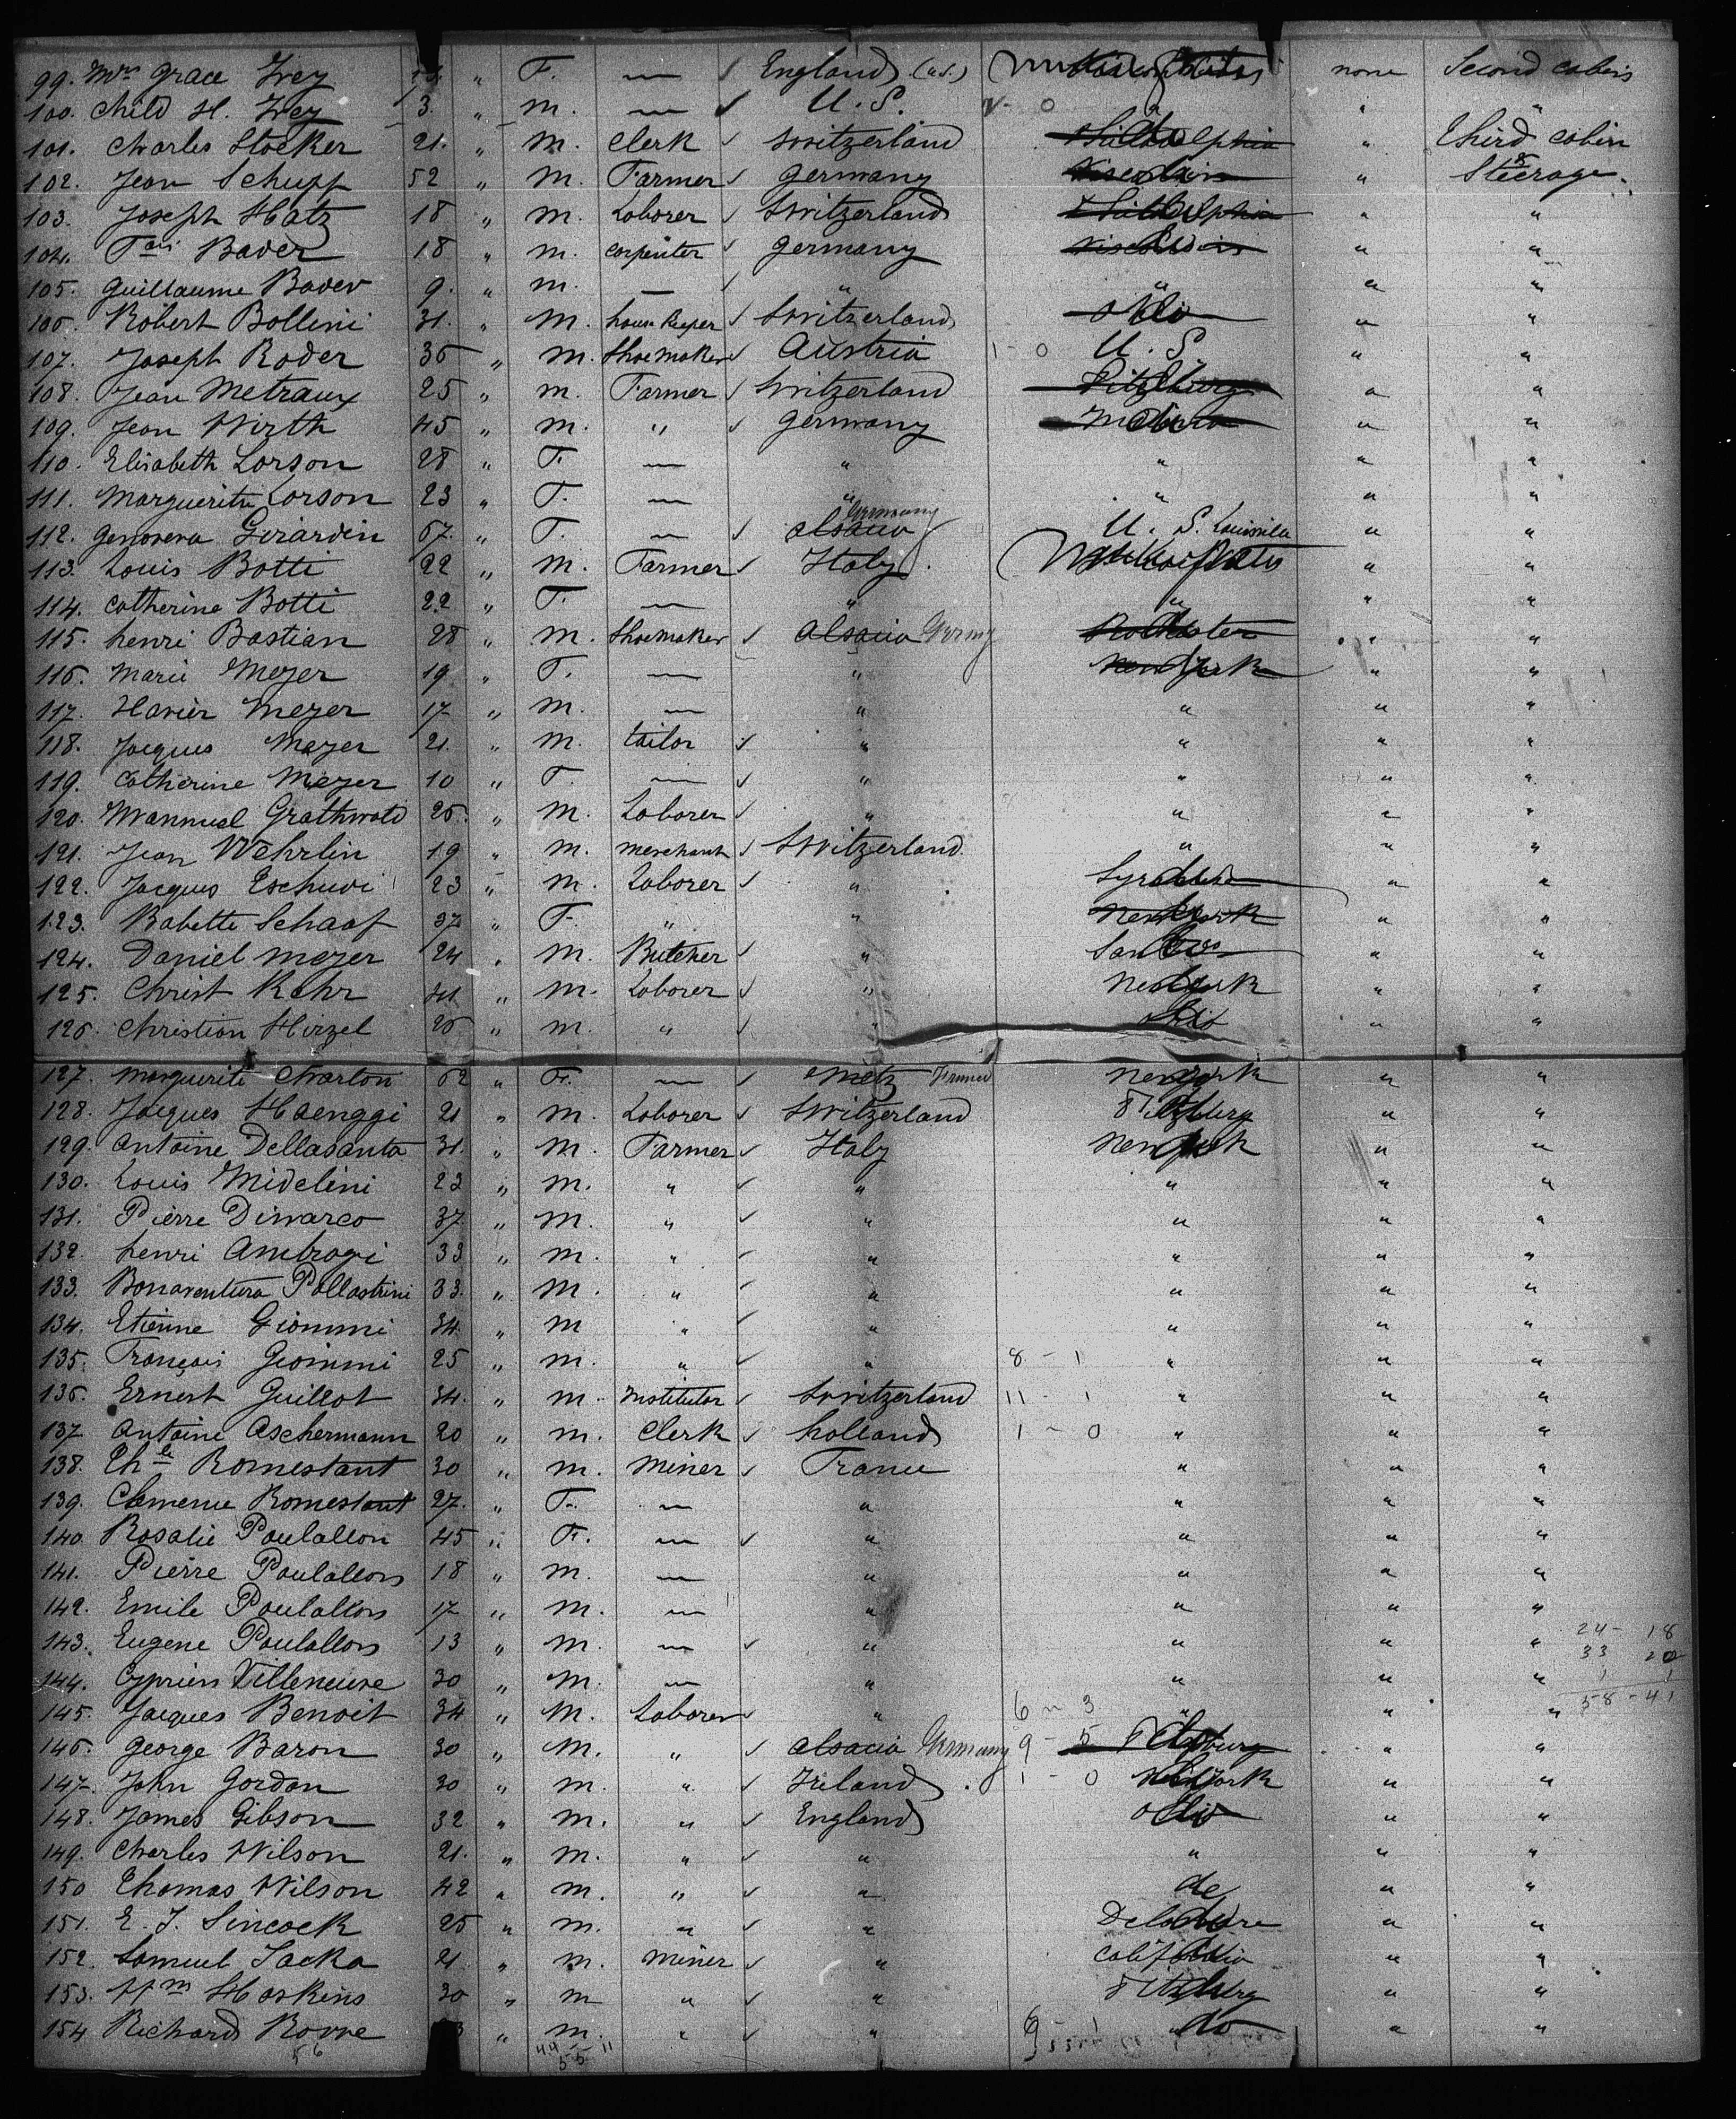 99. Mrs Grace Frey " F. — ✓ England (U.S.) none Second cabin
100. Child H. Frey 3. " m. — ✓ U. S. " " "
101. Charles Stocker 21. " m. Clerk ✓ Switzerland Philadelphia " third cabin
102. Jean Schupp 52 " m. Farmer ✓ Germany " Steerage
103. Joseph Hatz 18 " m. Laborer ✓ Switzerland Philadelphia " "
104. Bader 18 " m. carpenter ✓ Germany " "
105. Guillaume Bader 9. " m. — ✓ " " " "
106. Robert Bollini 31. " m. house keeper ✓ Switzerland Ohio " "
107. Joseph Roder 36 " m. Shoemaker ✓ Austria 1 - 0 U. S. " "
108. Jean Metraux 25 " m. Farmer ✓ Switzerland Pitzburg " "
109. Jean Wirth 45 " m. " ✓ Germany " "
110. Elisabeth Lorson 28 " F. — " " " "
111. Marguerite Lorson 23 " F. — " " " "
112. Genoveva Girardin 67. " F. — ✓ Alsacia Germany U. S. Louisville " "
113. Louis Botti 22 " m. Farmer ✓ Italy " "
114. Catherine Botti 22 " F. — " " " "
115. henri Bastian 28 " m. Shoemaker ✓ Alsacia Germy Rochester " "
116. Marie Meyer 19 " F. — " New York " "
117. Xavier Meyer 17 " m. — " " " "
118. Jacques Mayer 21. " m. tailor ✓ " " " "
119. Catherine Meyer 10 " F. — ✓ " " " "
120. Grathwold 26. " m. Laborer ✓ " " " "
121. Jean Wehrlin 19 " m. merchant ✓ Switzerland " " "
122. Jacques 23 " m. Laborer ✓ " " "
123. Babette Schaaf 37 " F. " " New York " "
124. Daniel Meyer 24 " m. Butcher ✓ " " "
125. Christ Rohr " m. Laborer ✓ " New York " "
126. Christian Hirzel 26 " m. " ✓ " Ohio " "
127. Marguerite Charton 62 " F. — ✓ Metz France New York " "
128. Jacques Haenggi 21 " m. Laborer ✓ Switzerland Pitzburg " "
129. Antoine Dellasanta 31. " m. Farmer ✓ Italy New York " "
130. Louis Midelini 23 " m. " ✓ " " " "
131. Pierre Dimarco 37 " m. " ✓ " " " "
132. henri Ambrogi 33 " m. " ✓ " " " "
133. Bonaventura Pollastrini 33. " m. " ✓ " " " "
134. Etienne Giommi 34. " m " ✓ " " " "
135. François Giommi 25 " m. " ✓ " 8 - 1 " " "
136. Ernest Guillot 34. " m. Institutor ✓ Switzerland 11 - 1 " " "
137 Antoine Aschermann 20 " m. Clerk ✓ holland 1 - 0 " " "
138. Chle Romestant 30 " m. miner ✓ France " " "
139. Clemence Romestant 27. " F. — " " " "
140. Rosalie Poulallon 45 " F. — ✓ " " " "
141. Pierre Poulallon 18 " m. — " " " "
142. Emile Poulallon 17 " m. — " " " "
143. Eugene Poulallon 13 " m. — ✓ " " " " 24 - 18
33 22
144. Cyprien Villeneuve 30 " m. — " " " " 1 1
145. Jacques Benoit 34 " m. Laborer ✓ " 6 - 3 " " " 58 - 41
146. George Baron 30 " m. " ✓ Alsacia Germany 9 - 5 Pitzburg " "
147. John Gordon 30 " m. " ✓ Ireland 1 - 0 New York " "
148. James Gibson 32 " m. " ✓ England Ohio " "
149. Charles Wilson 21. " m. " ✓ " " " "
150 Thomas Wilson 42 " m. " ✓ " " "
151. E. J. Sincock 25 " m. " ✓ " Delaware " "
152. Samuel Jacka 21. " m. miner ✓ " California " "
153. Wm Hoskins 30 " m " ✓ " Pitzburg " "
154 Richard Rowe " m. " ✓ " 9 - 1 do " "
56 44 - 11
55